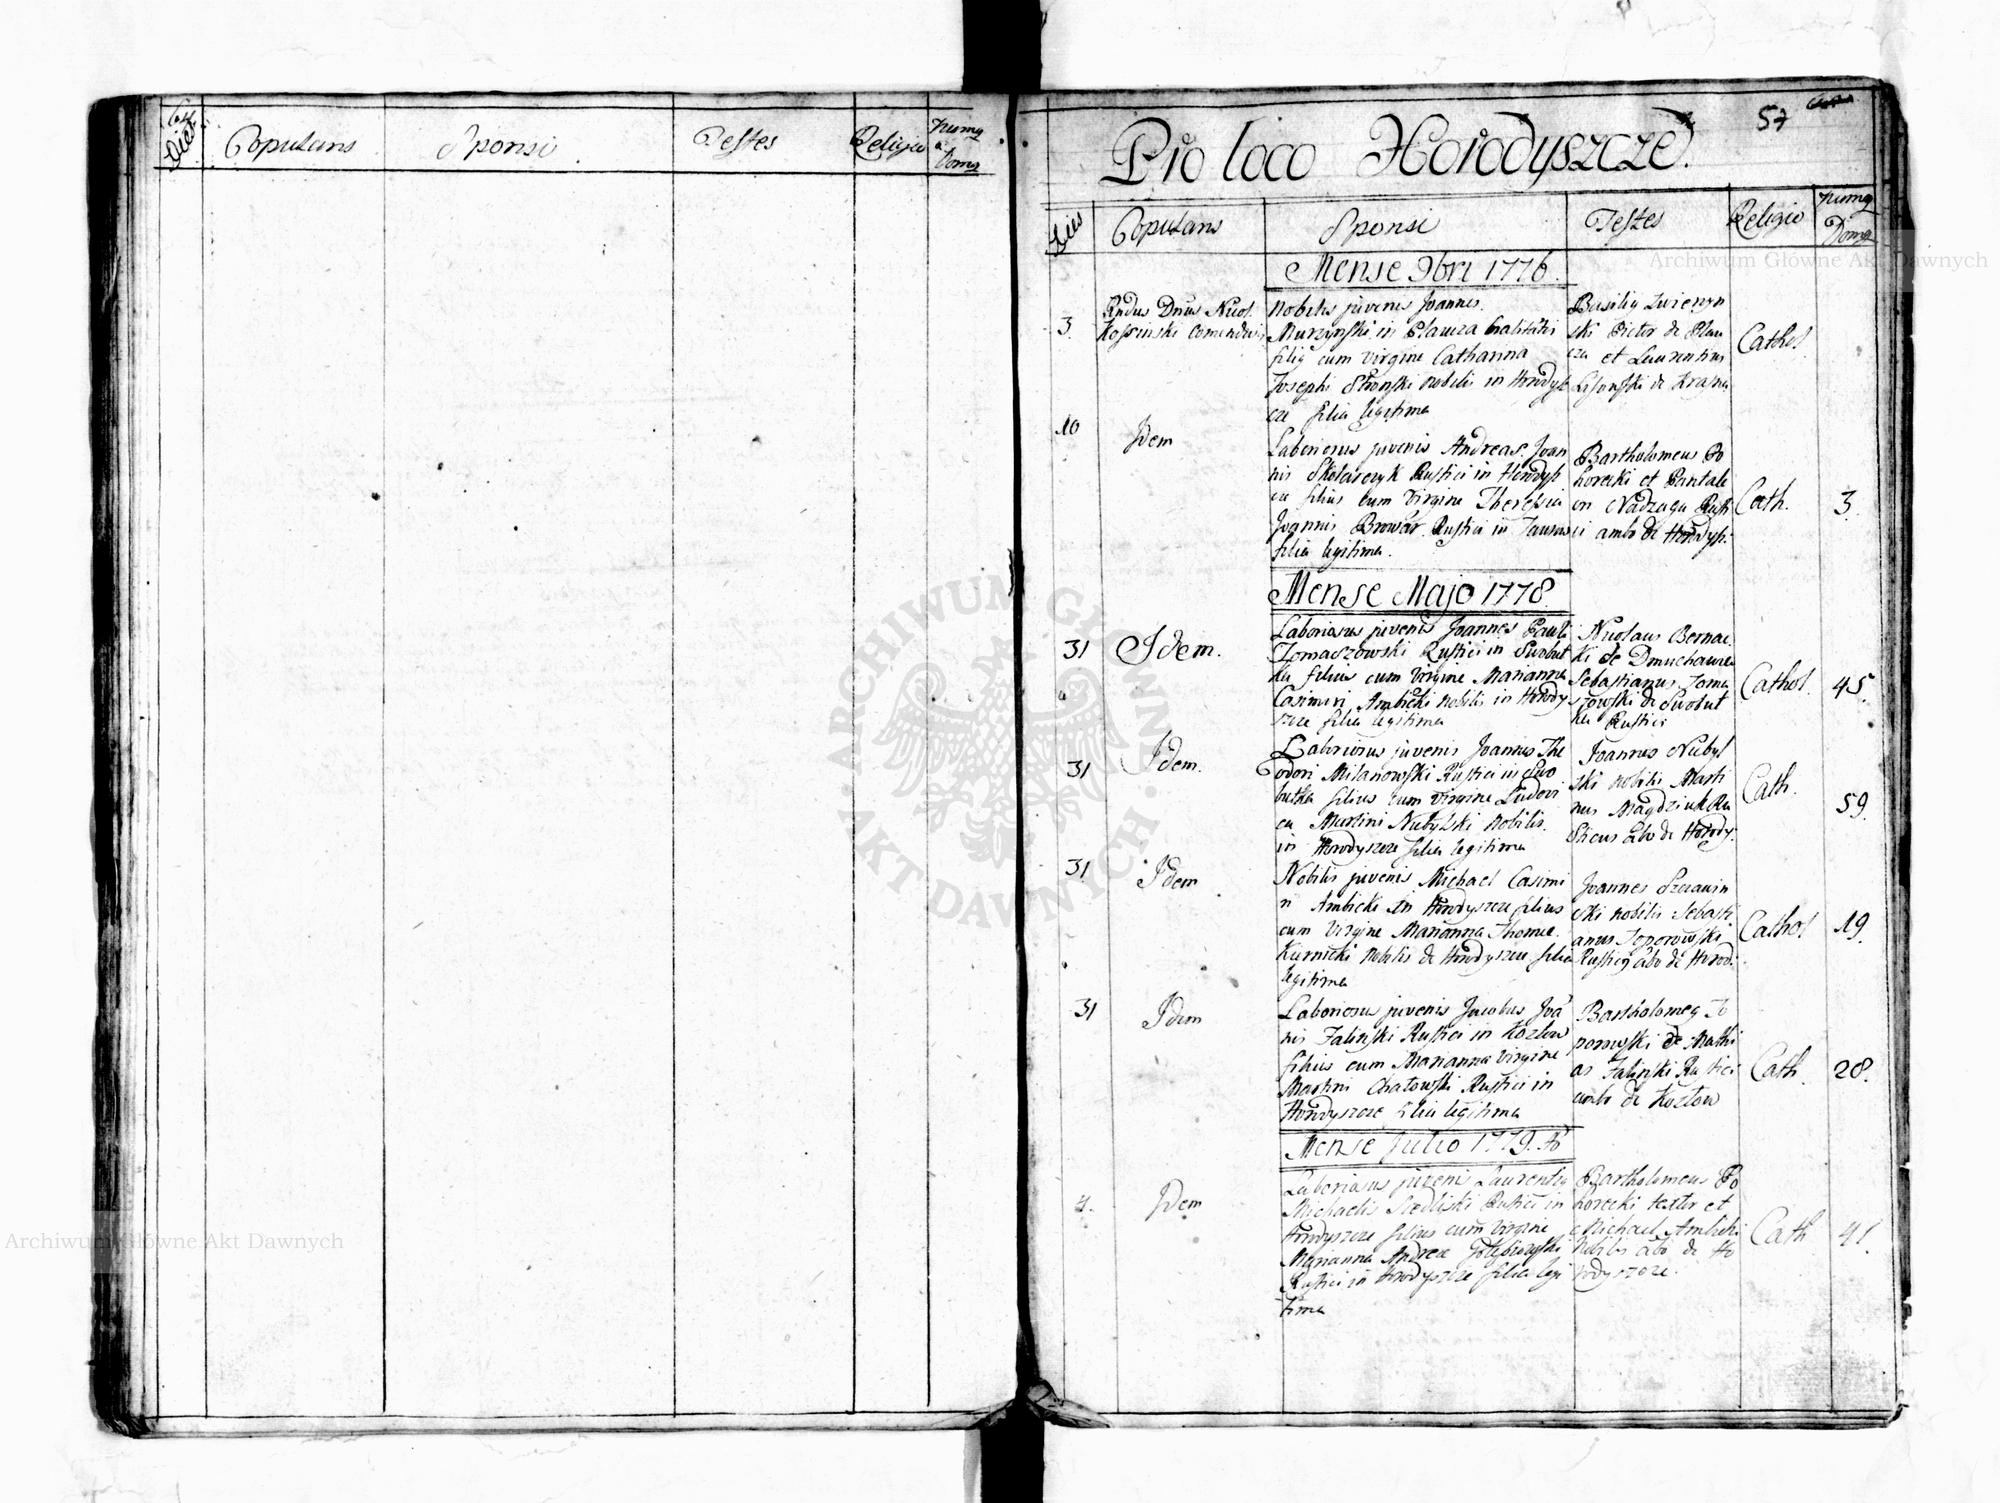 Dies
Copulans
Sponsi
Testes
Religio
Numq
Domq
57
Pro loco Horodyszcze.
Dies
Copulans
Sponsi
Testes
Religio
Numq
Domq
Mense 9bri 1776.
3.
Rndus Dnus Nicol.
Kossinski Comendarius
Nobilis juvenis Joannes
Murzynski in Plawza
filiq cum virgine Catharina
Josephi nobilis in Horodysz
cze filia legitima
Basiliq
ski Pictor de Plau
cza et Laurentius
de Krasna
Cathol.
10
Idem
Laboriosus juvenis Andreas Joan
nis Skolarczyk Rustici in Horodysz
cze filius cum Virgine Theressia
Joannis Browar Rustici in
filia legitima.
Bartholomeus Po
horecki et Pantale
on Nadzaga Rusti
ci ambo de Horodysz.
Cath.
3.
Mense Majo 1778.
31
Idem.
Laboriosus juvenis Joannes Pauli
Tomaszowski Rustici in Swobut
ka filius cum Virgine Marianna
Casimiri Ambicki nobilis in Horody
szcze filia legitima
Nicolaus Bernac
ki de Dmuchawec
Sebastianus Toma
szowski de Swobut
ka Rustici
Cathol.
45.
31
Idem.
Laboriosus juvenis Joannes The
odori Milanowski Rustici in Swo
butka filius cum Virgine Ludovi
ca Martini Nubylski nobilis.
in Horodyszcze filia legitima
Joannes Nubyl
ski nobilis Marti
nus Magdziuk Ru
sticus abo de Horody.
Cath.
59.
31
Idem
Nobilis juvenis Michael Casimi
ri Ambicki in Horodyszcze filius
cum Virgine Marianna Thomae
Kurnicki Nobilis de Horodyszcze filia
legitima
Joannes Szczawin
ski nobilis Sebasti
anus Toporowski
Rusticq abo de Horod.
Cathol
19.
31
Idem
Laboriosus juvenis Jacobus Joa
nis Falinski Rustici in Kozlow
filius cum Marianna Virgine
Martini Chatowski Rustici in
Horodyszcze filia legitima
Bartholomeq To
porowski de Mathi
as Falinski Rustici
ambo de Kozlow
Cath.
28.
Mense Julio 1779.
4.
Idem
Laboriosus juvenis Laurentiq
Michaelis Siedliski Rustici in
Horodyszcze filius cum Virgine
Marianna Andreae Golębiowski
Rustici in Horodyszcze filia legi
tima
Bartholomeus Po
horecki textor et
Michael Ambicki
Nobilis abo de Ho
rodyszcze.
Cath
41.
Archiwum Główne Akt Dawnych
ARCHIWUM GŁÓWNE
· AKT DAWNYCH ·
Archiwum Główne Akt Dawnych